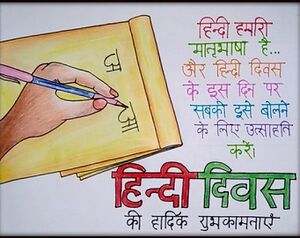 हिन्दी हमारी
मातृभाषा है...
और हिन्दी दिवस
के इस दिन पर
सबको इसे बोलने
के लिए उत्साहित
करें।
अ
आ
हिन्दी दिवस
की हार्दिक शुभकामनाएं